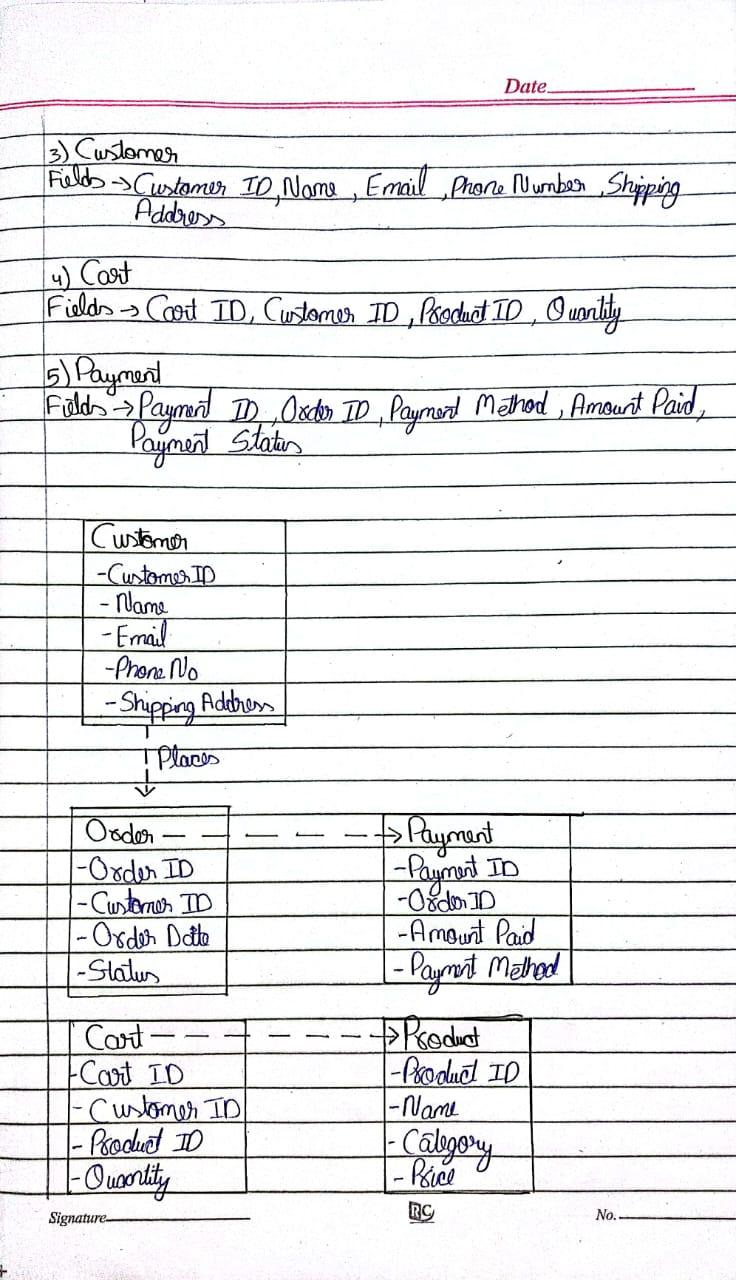 Date
3) Customer
Fields → Customer ID, Name, Email, Phone Number, Shipping
Address
4) Cart
Fields → Cart ID, Customer ID, Product ID, Quantity
5) Payment
Fields → Payment ID, Order ID, Payment Method, Amount Paid,
Payment Status
Customer
- Customer ID
- Name
- Email
- Phone No
- Shipping Address
Places
Order
- Order ID
- Customer ID
- Order Date
- Status
Payment
- Payment ID
- Order ID
- Amount Paid
- Payment Method
Cart
- Cart ID
- Customer ID
- Product ID
- Quantity
Product
- Product ID
- Name
- Category
- Price
Signature
RC
No.